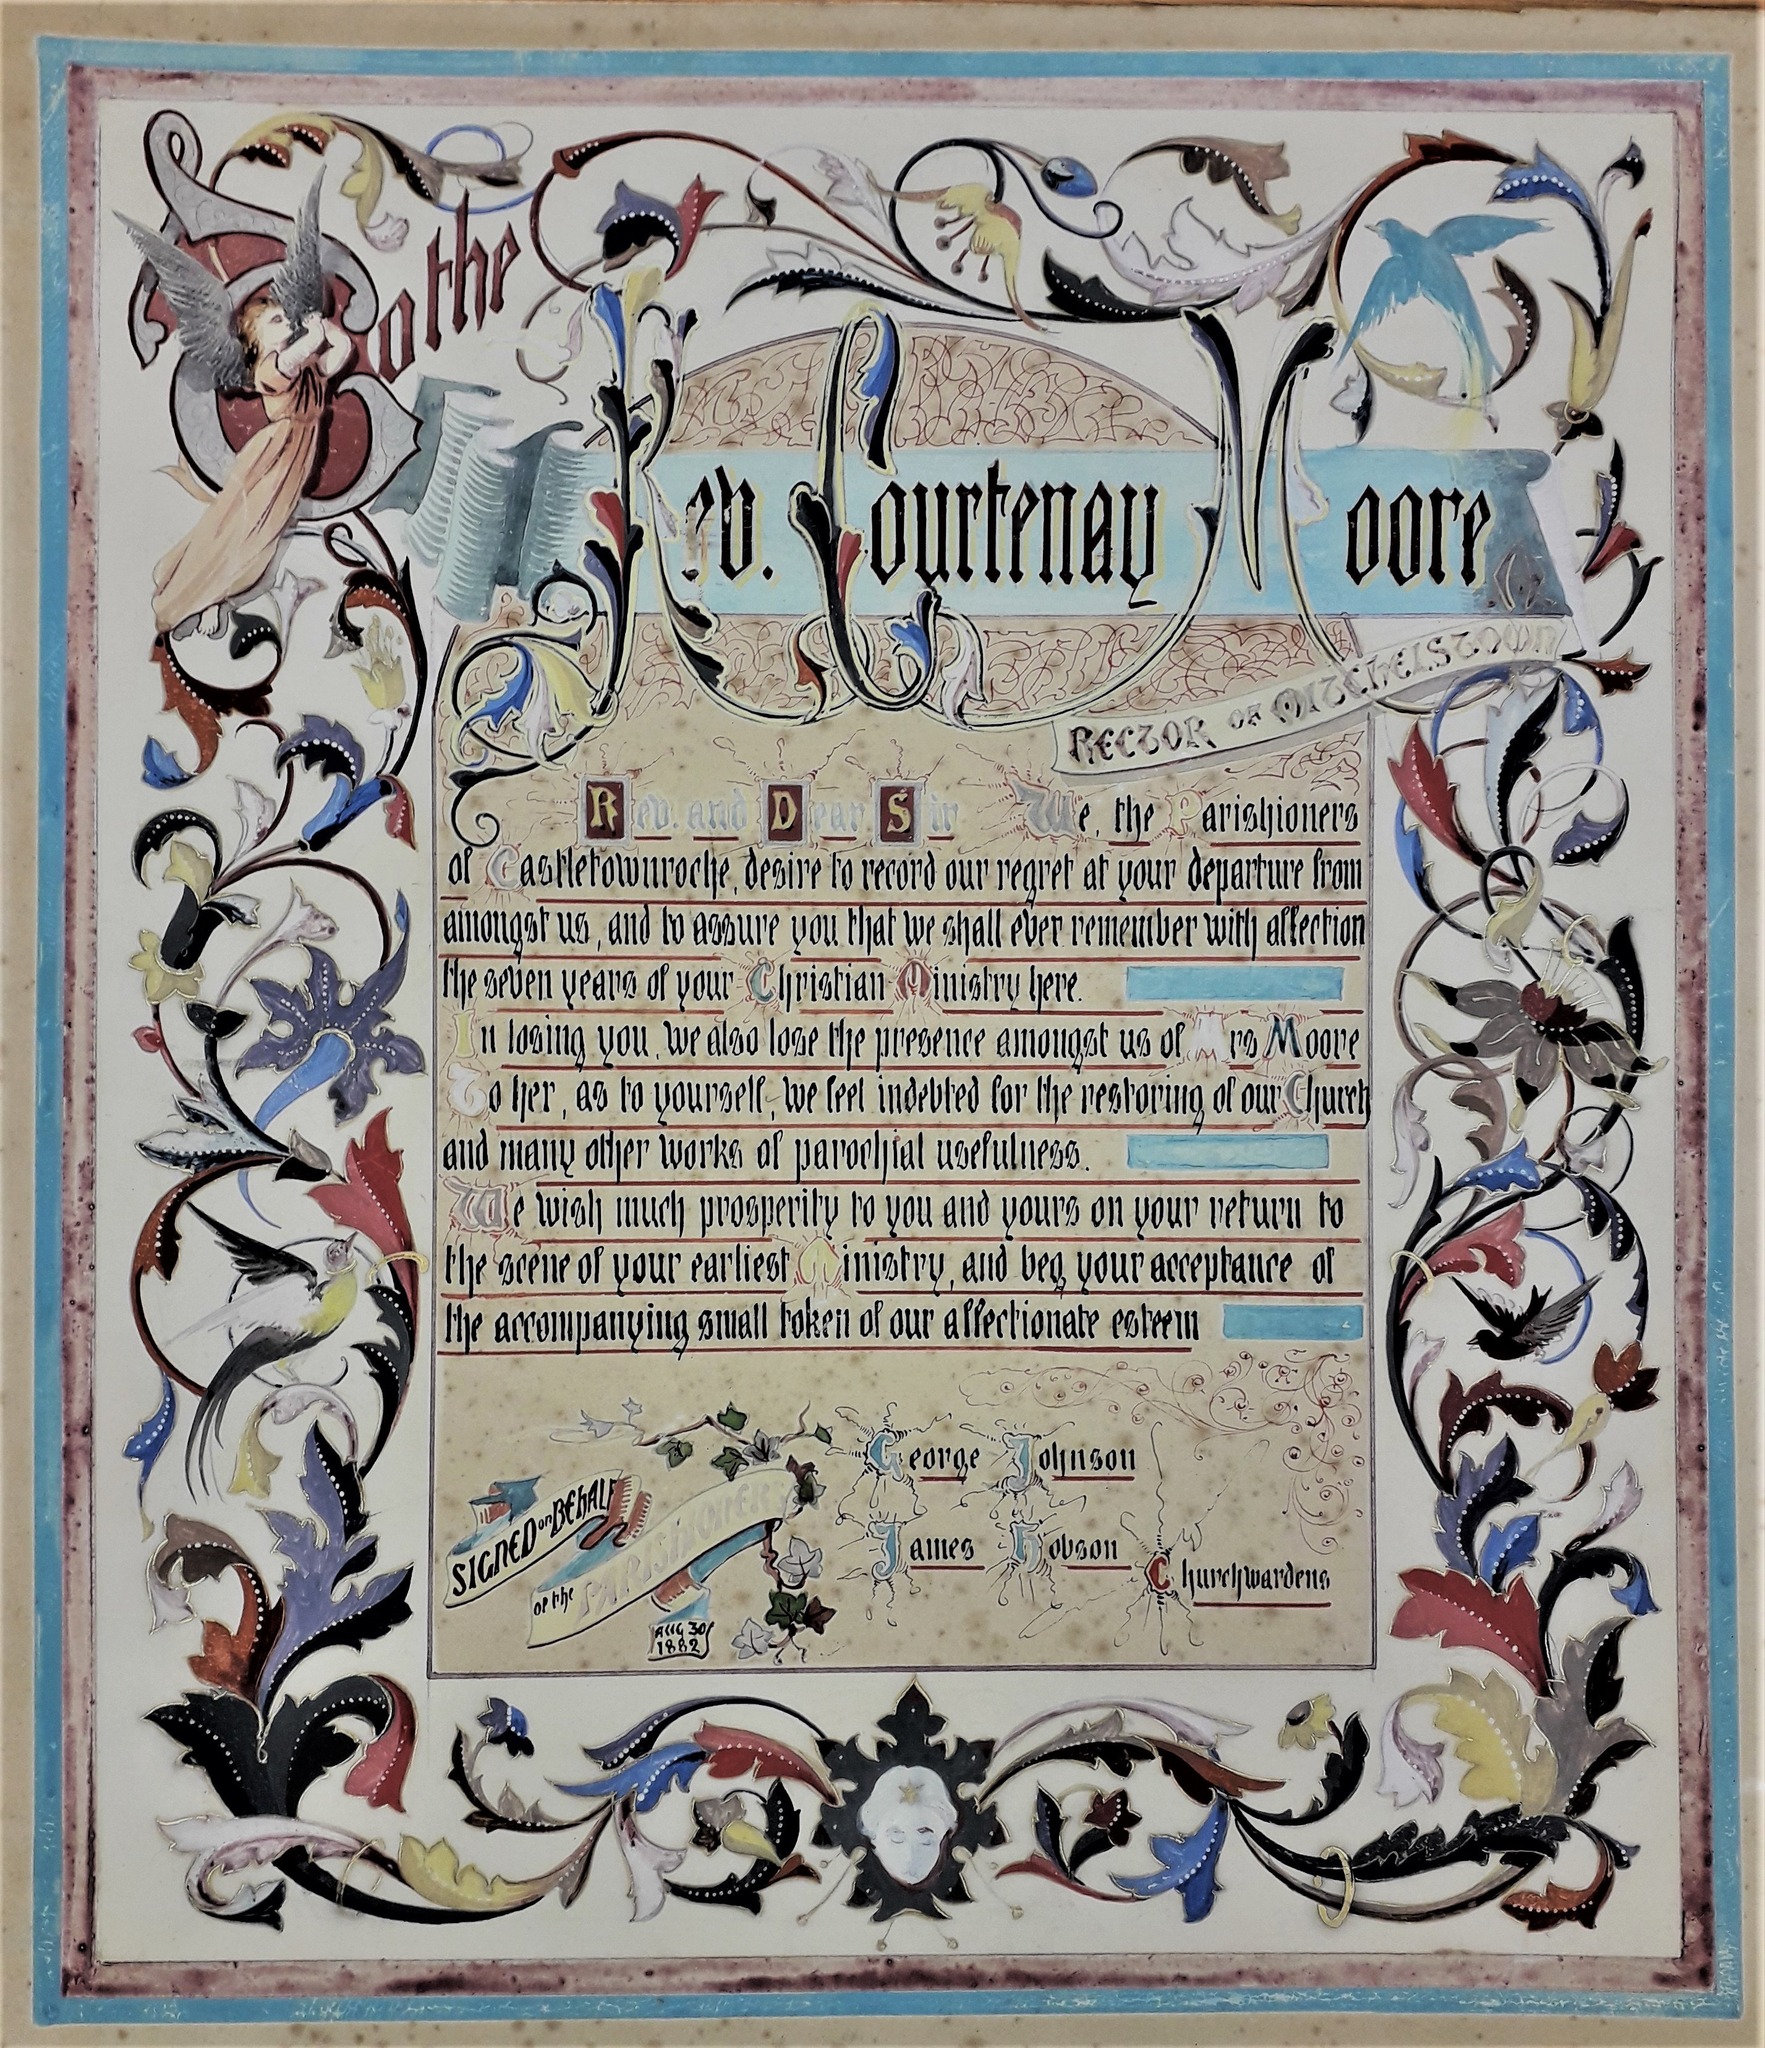 To the
Rev. Courtenay Moore
RECTOR OF MITCHELSTOWN
Rev. and Dear Sir We, the Parishioners
of Castletownroche, desire to record our regret at your departure from
amongst us, and to assure you that we shall ever remember with affection
the seven years of your Christian Ministry here.
In losing you, we also lose the presence amongst us of Mrs Moore
To her, as to yourself, we feel indebted for the restoring of our Church
and many other works of parochial usefulness.
We wish much prosperity to you and yours on your return to
the scene of your earliest Ministry, and beg your acceptance of
the accompanying small token of our affectionate esteem
SIGNED on BEHALF
of the PARISHIONERS
AUG 30
1882
George Johnson
James Hobson
Churchwardens